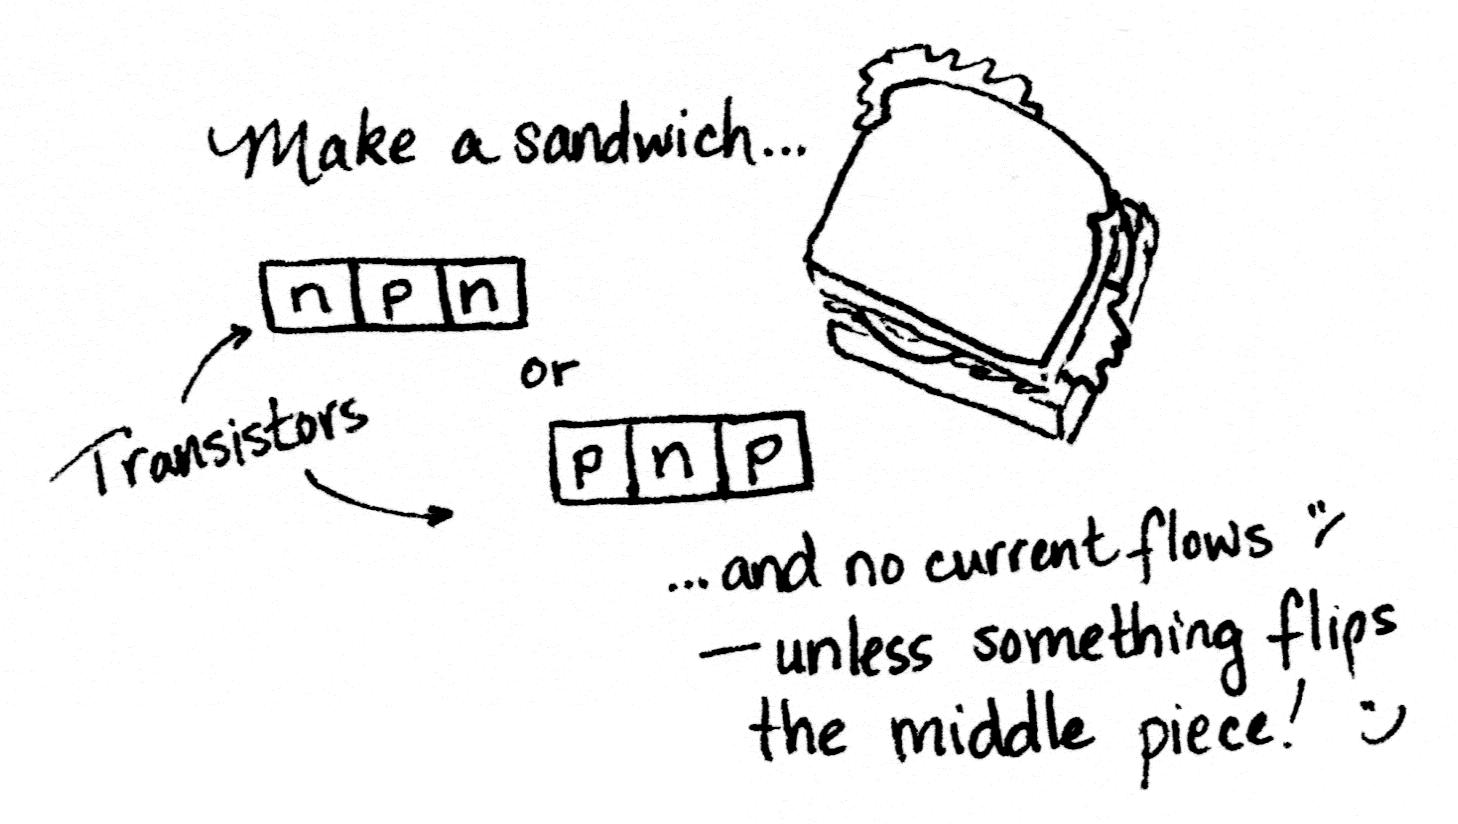 Make a sandwich...
n p n
or
Transistors
p n p
...and no current flows :/
— unless something flips
the middle piece! :)